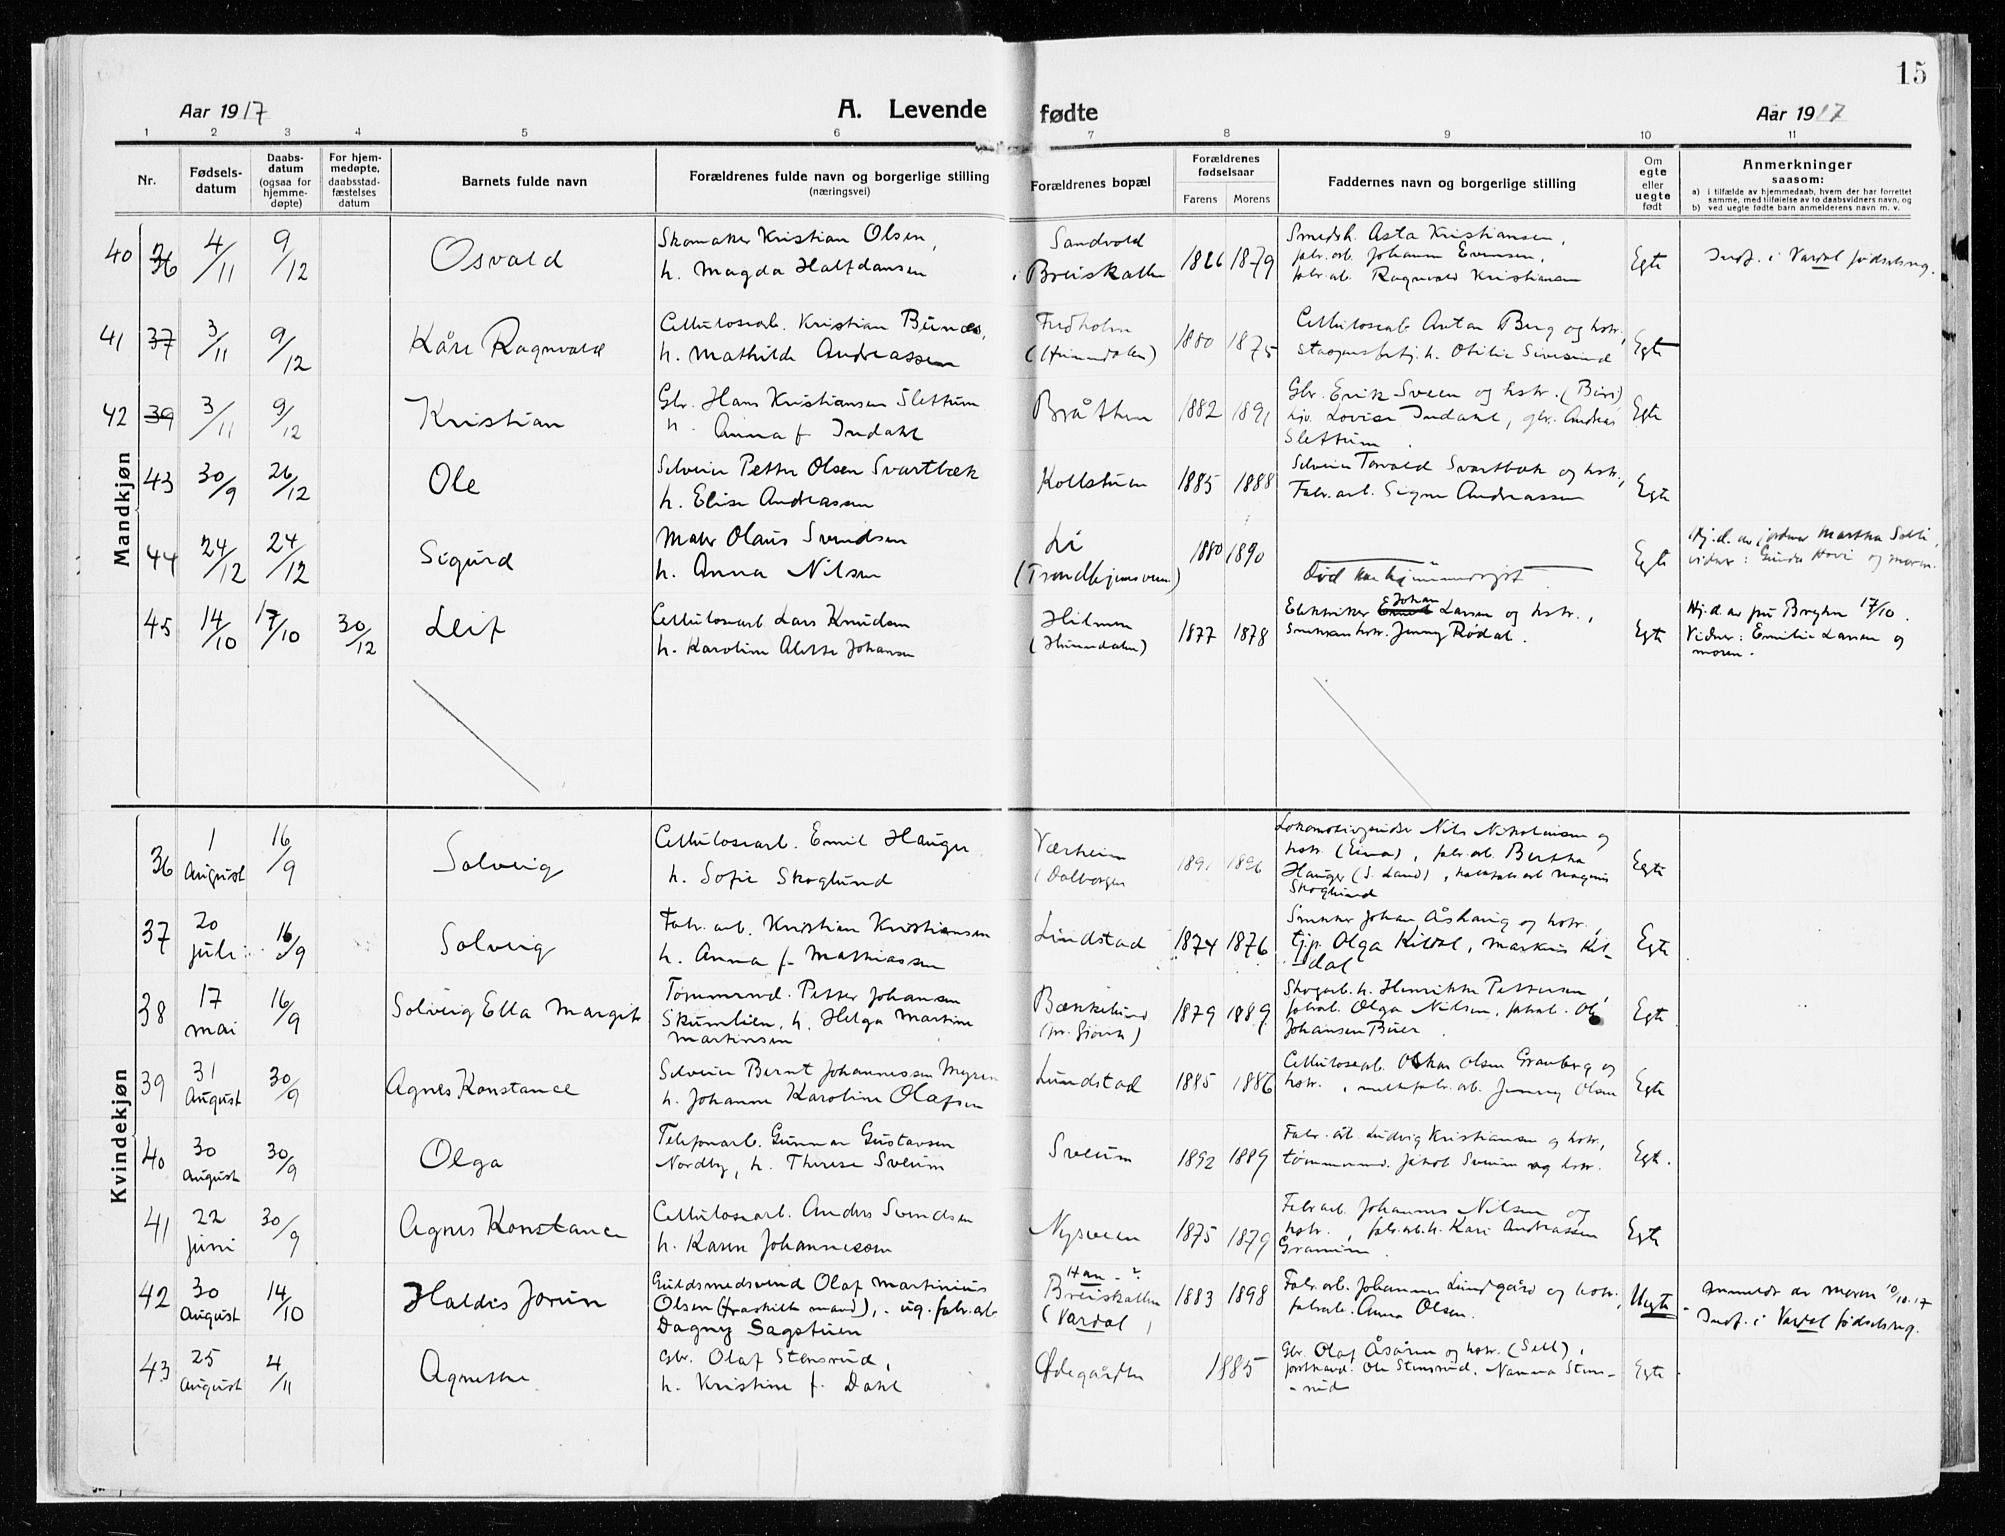 15
Aar 1917 A. Levende fødte Aar 1917
1 2 3 4 5 6 7 8 9 10 11
Nr.
Fødsels-
datum
Daabs-
datum
(ogsaa for
hjemme-
døpte)
For hjem-
medøpte,
daabsstad-
fæstelses
datum
Barnets fulde navn
Forældrenes fulde navn og borgerlige stilling
(næringsvei)
Forældrenes bopæl
Forældrenes
fødselsaar
Farens Morens
Faddernes navn og borgerlige stilling
Om
egte
eller
uegte
født
Anmerkninger
saasom:
a) i tilfælde av hjemmedaab, hvem der har forrettet
samme, med tilføielse av to daabsvidners navn, og
b) ved uegte fødte barn anmelderens navn m. v.
Mandkjøn
40 36 4/11 9/12 Osvald
Skomaker Kristian Olsen,
h. Magda Halfdansen
Sandvold
Breiskallen
1879
Smedsh. Asta Kristiansen,
fabr.arb. Johann Evensen,
fabr.arb. Ragnvald Kristiansen
Egte
Indf. i Vardal fødselsreg.
41 37 3/11 9/12 Kåre Ragnvald
Cellulosearb. Kristian Bünæs,
h. Mathilde Andreassen
Fredholm
(Hunndalen)
1880 1875
Cellulosearb. Anton Berg og hstr.,
h. Otilie Sivesind
Egte
42 39 3/11 9/12 Kristian
Gbr. Hans Kristiansen Slettum
h. Anna f. Indahl
Bråthen
1882 1891
Gbr. Erik Sveen og hstr. (Biri)
Lovise Indahl, gbr. Andreas
Slettum.
Egte
43 30/9 26/12 Ole
Selveier Petter Olsen Svartbæk
h. Elise Andreassen
Kollstuen
1885 1888
Selveier Torvald Svartbæk og hstr.,
Fabr.arb. Signe Andreassen
Egte
44 24/12 24/12 Sigurd
Maler Olaus Svendsen
h. Anna Nilsen
Li
(Trondhjemsveien)
1880 1890
Død som hjemmedøpt
Egte
Hj.d. av jordmor Martha Solli,
vidner: Gunda Hovi og moren.
45 14/10 17/10 30/12 Leif
Cellulosearb. Lars Knudsen
h. Karoline Alette Johansen
Hilmen
(Hunndalen)
1877 1878
Elektriker Johan Larsen og hstr.,
Jenny Rødal.
Egte
Hj.d. av fru Bryhn 17/10.
Vidner: Emilie Larsen og
moren.
Kvindekjøn
36 1 August 16/9 Solveig
Cellulosearb. Emil Hauger
h. Sofie Skoglund
Værheim
(Dalborgen
1891 1896
Nils Nikolaisen og
hstr. (Eina), fabr.arb. Bertha
Hauger (S. Land), Magnus
Skoglund
Egte
37 20 juli 16/9 Solveig
Fabr.arb. Kristian Kristiansen
h. Anna f. Mathiassen
Lindstad
1874 1876
Snekker Johan Åshaug og hstr.,
tj.p. Olga Kildal, Markus Kil-
dal
Egte
38 17 mai 16/9 Solveig Ella Margit
Tømmermd. Petter Johansen
Skumlien, h. Helga Martine
Martinsen
Bænkelund
(pr. Gjøvik)
1879 1889
Skogarb. h. Henrikke Pettersen,
fabrarb. Olga Nilsen, fabrarb. Ole
Johansen Buer.
Egte
39 31 August 30/9 Agnes Konstance
Selveier Bernt Johannessen Myren
h. Johanne Karoline Olafsen
Lundstad
1885 1886
Cellulosearb. Oskar Olsen Granberg og
hstr., Jenny Olsen
Egte
40 30 August 30/9 Olga
Telefonarb. Gunnar Gustavsen
Nordby, h. Therese Sveum
Sveum
1892 1889
Fabr.arb. Ludvig Kristiansen og hstr.,
tømmermd. Jakob Sveum og hstr.
Egte.
41 22 juni 30/9 Agnes Konstance
Cellulosearb. Anders Svendsen
h. Karen Johannessen
Nysveen
1875 1879
Fabr.arb. Johannes Nilsen og
hstr., fabr.arb.h. Kari Andreassen
Egte
42 30 August 14/10 Haldis Jorun
Guldsmedsvend Olaf Martinius
Olsen (fraskilt mand), ug. fabr.arb.
Dagny Sagstuen
Han - ?
Breiskallen
(Vardal)
1883 1898
Fabr.arb. Johannes Lundgård og hstr.,
fabrarb. Anna Olsen.
Uegte
Anmeldt av moren 10/10.17
Indf. i Vardal fødselsreg.
43 25 August 4/11 Agnethe
Gbr. Olaf Stensrud,
h. Kristine f. Dahl
Ødegården
1885
Gbr. Olaf Åsåren og hstr. (Sell),
Ole Stensrud, Nanna Stens-
rud
Egte